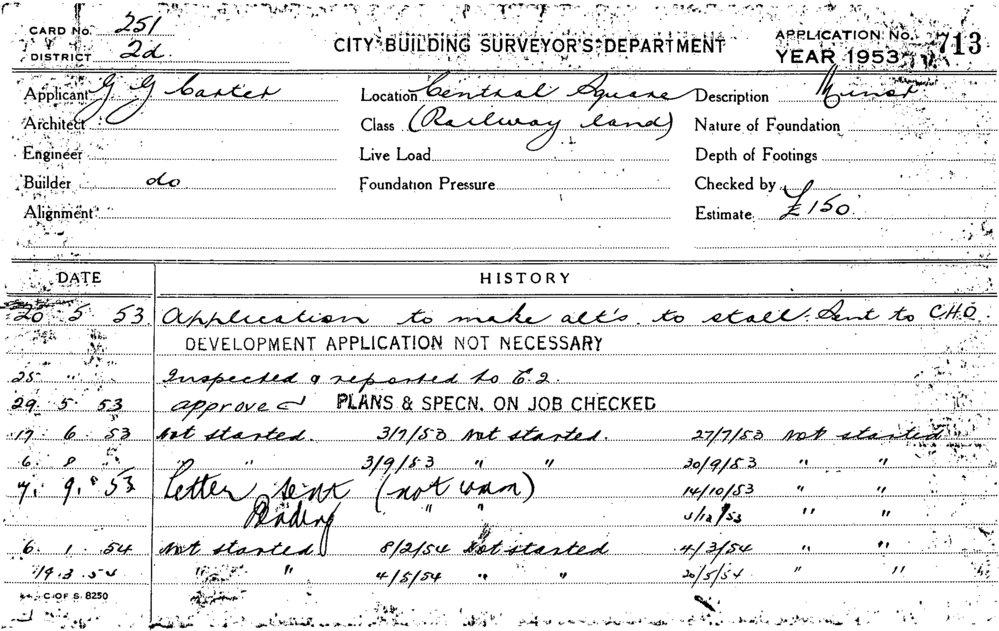 CARD No. 251
DISTRICT 2d
CITY BUILDING SURVEYOR'S DEPARTMENT
APPLICATION No. 713
YEAR 1953
Applicant G G Carter Location Central Square Description Minor
Architect Class (Railway land) Nature of Foundation
Engineer Live Load Depth of Footings
Builder do Foundation Pressure Checked by
Alignment Estimate £150
DATE HISTORY
20 5 53 Application to make alt's. to stall. Sent to C.H.O.
DEVELOPMENT APPLICATION NOT NECESSARY
25 " " Inspected & reported to
29 5 53 approved PLANS & SPECN. ON JOB CHECKED
17 6 53 Not started. 3/7/53 Not started. 27/7/53 Not started
6 8 " " 3/9/53 " " 20/9/53 " "
7. 9. 53 Letter sent (not worn) 14/10/53 " "
Pending " " 3/12/53 " "
6 1 54 Not started 8/2/54 Not started 4/3/54 " "
19.3.54 " " 4/5/54 " " 20/5/54 " "
C OF S. 8250